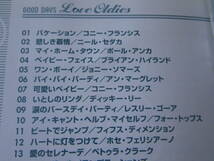 GOOD DAYS Love Oldies
01 バケーション/コニー・フランシス
02 悲しき慕情/ニール・セダカ
03 マイ・ホーム・タウン/ポール・アンカ
04 ベイビー・フェイス/ブライアン・ハイランド
05 ワン・ボーイ/ジョニー・ソマーズ
06 バイ・バイ・バーディ/アン・マーグレット
07 可愛いベイビー/コニー・フランシス
08 いとしのリング/ディッキー・リー
09 涙のバースデイ・パーティ/レスリー・ゴーア
10 アイ・キャント・ヘルプ・マイセルフ/フォー・トップス
11 ビートでジャンプ/フィフス・ディメンション
12 ハートに灯をつけて/ホセ・フェリシアーノ
13 愛のセレナーデ/ペトゥラ・クラーク